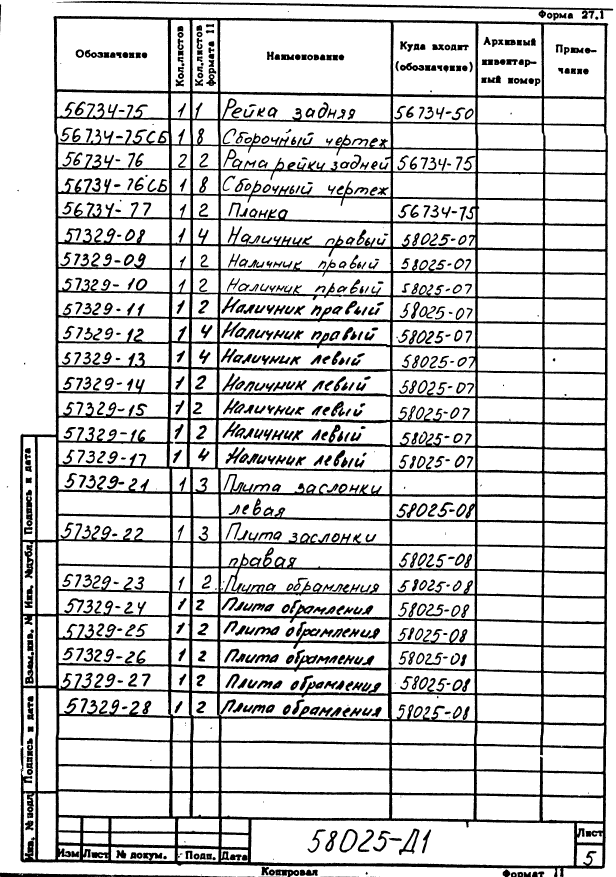 Форма 27.1
Обозначение Кол.листов Кол.листов формата 11 Наименование Куда входит (обозначение) Архивный инвентар-ный номер Приме-чание
56734-75 1 1 Рейка задняя 56734-50
56734-75СБ 1 8 Сборочный чертеж
56734-76 2 2 Рама рейки задней 56734-75
56734-76СБ 1 8 Сборочный чертеж
56734-77 1 2 Планка 56734-75
57329-08 1 4 Наличник правый 58025-07
57329-09 1 2 Наличник правый 58025-07
57329-10 1 2 Наличник правый 58025-07
57329-11 1 2 Наличник правый 58025-07
57329-12 1 4 Наличник правый 58025-07
57329-13 1 4 Наличник левый 58025-07
57329-14 1 2 Наличник левый 58025-07
57329-15 1 2 Наличник левый 58025-07
57329-16 1 2 Наличник левый 58025-07
57329-17 1 4 Наличник левый 58025-07
57329-21 1 3 Плита заслонки
левая 58025-08
57329-22 1 3 Плита заслонки
правая 58025-08
57329-23 1 2 Плита обрамления 58025-08
57329-24 1 2 Плита обрамления 58025-08
57329-25 1 2 Плита обрамления 58025-08
57329-26 1 2 Плита обрамления 58025-08
57329-27 1 2 Плита обрамления 58025-08
57329-28 1 2 Плита обрамления 58025-08
Подпись и дата
Инв. №дубл.
Взам.инв. №
Подпись и дата
Инв. №подл
58025-Д1
Лист
5
Изм Лист № докум. Подп. Дата
Копировал Формат 11